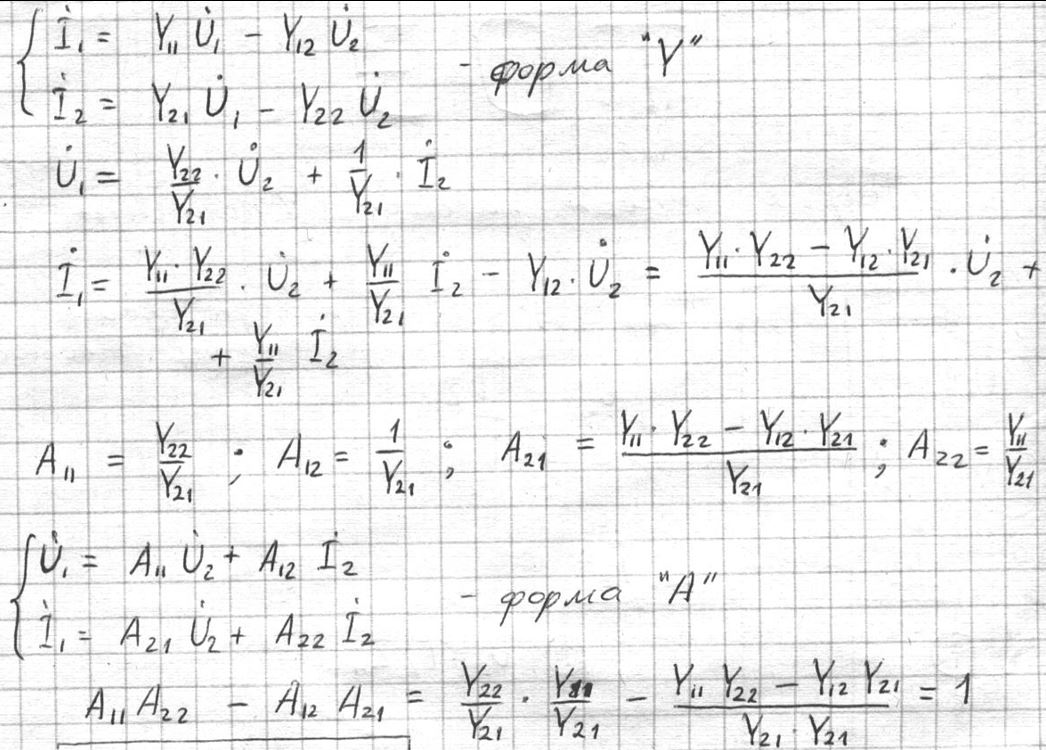 İ₁ = Y₁₁ U̇₁ − Y₁₂ U̇₂
- форма "Y"
İ₂ = Y₂₁ U̇₁ − Y₂₂ U̇₂
U̇₁ = Y₂₂/Y₂₁ · U̇₂ + 1/Y₂₁ · İ₂
İ₁ = Y₁₁·Y₂₂/Y₂₁ · U̇₂ + Y₁₁/Y₂₁ İ₂ − Y₁₂·U̇₂ = (Y₁₁·Y₂₂ − Y₁₂·Y₂₁)/Y₂₁ · U̇₂ +
+ Y₁₁/Y₂₁ İ₂
A₁₁ = Y₂₂/Y₂₁ ; A₁₂ = 1/Y₂₁ ; A₂₁ = (Y₁₁·Y₂₂ − Y₁₂·Y₂₁)/Y₂₁ ; A₂₂ = Y₁₁/Y₂₁
U̇₁ = A₁₁ U̇₂ + A₁₂ İ₂
- форма "A"
İ₁ = A₂₁ U̇₂ + A₂₂ İ₂
A₁₁ A₂₂ − A₁₂ A₂₁ = Y₂₂/Y₂₁ · Y₁₁/Y₂₁ − (Y₁₁ Y₂₂ − Y₁₂ Y₂₁)/(Y₂₁·Y₂₁) = 1